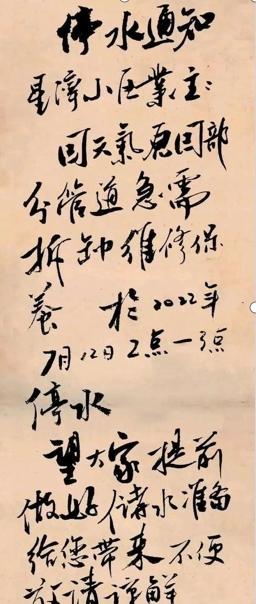 停水通知
星濘小区業主：
因天氣原因部
分管道急需
拆卸維修保
養 於2022年
7月12日2点一3点
停水
望大家提前
做好储水准备
给您带来不便
敬请谅解